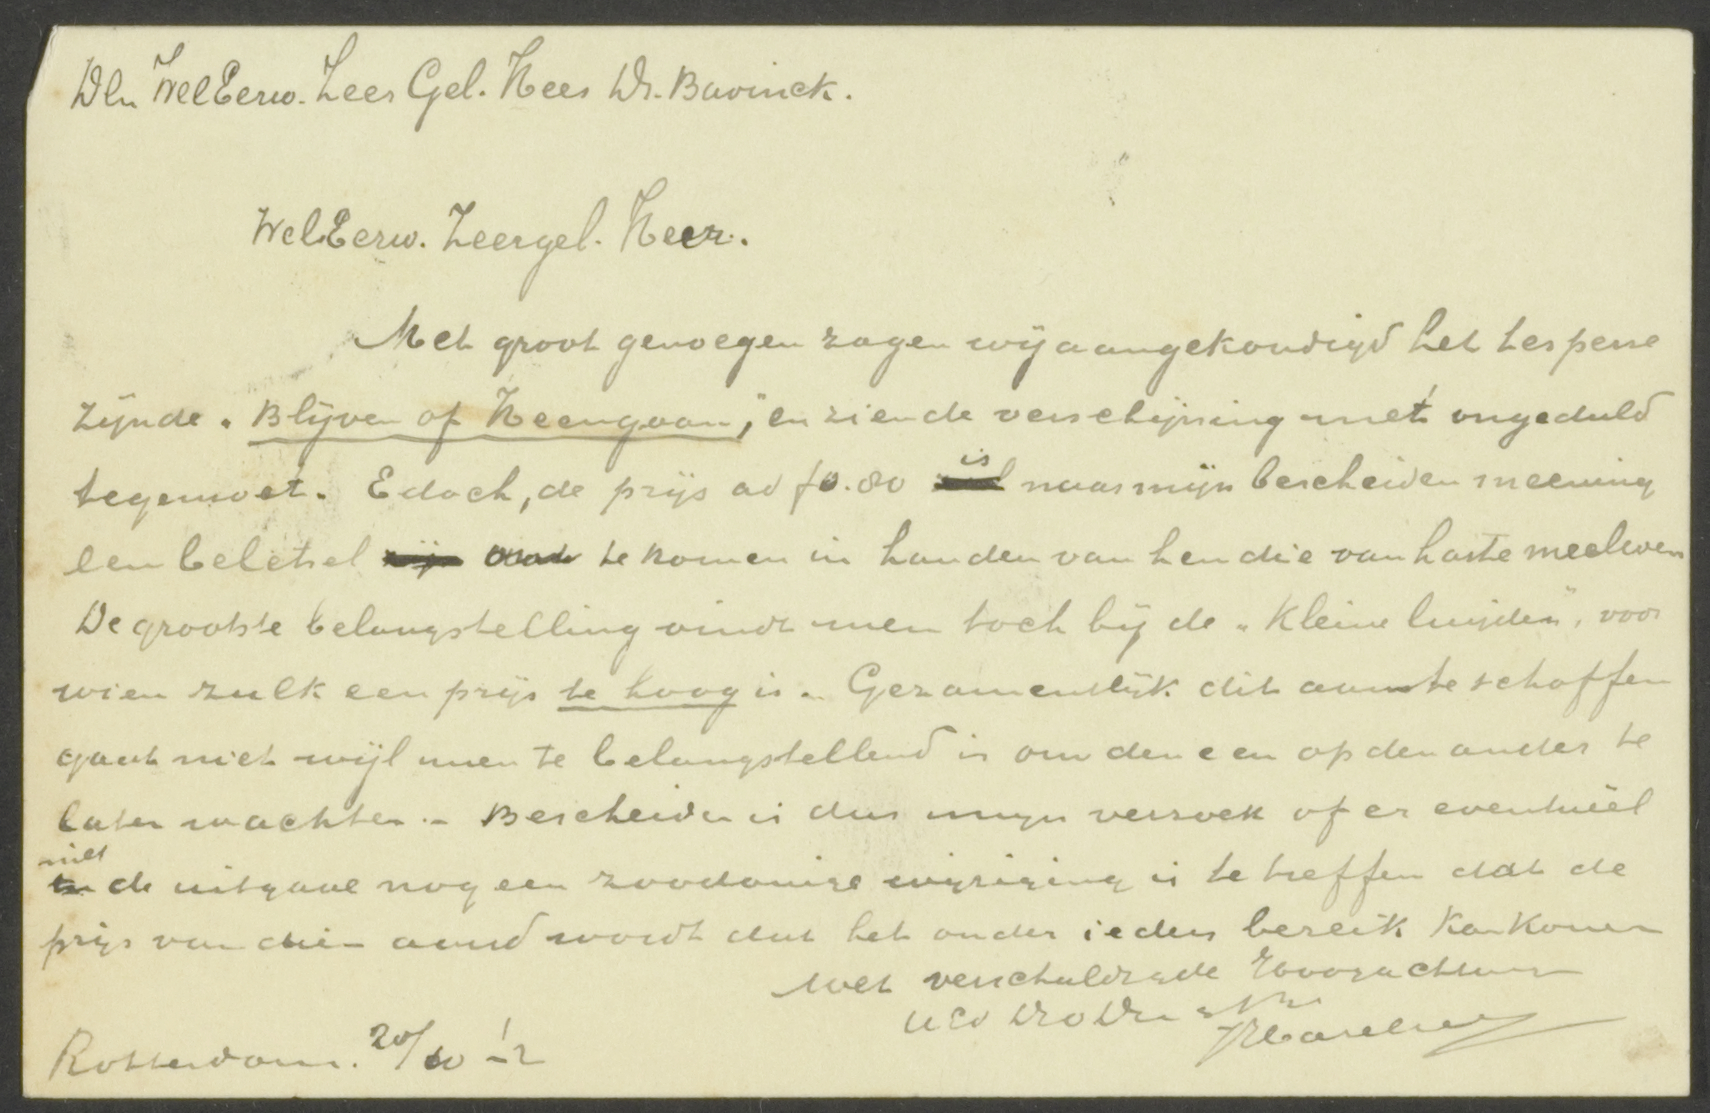 Den WelEerw. Zeer Gel. Heer Dr. Bavinck.
WelEerw. Zeergel. Heer.
Met groot genoegen zagen wij aangekondigd het ter perse
zijnde „Blijven of Heengaan," en zien de verschijning met ongeduld
tegemoet. Edoch, de prijs ad f0.80 is naar mijn bescheiden meening
een beletsel te komen in handen van hen die van harte meeleven
De grootste belangstelling vindt men toch bij de „Kleine luijden", voor
wien zulk een prijs te hoog is. Gezamenlijk dit aan te schaffen
gaat niet wijl men te belangstellend is om den een op den ander te
laten wachten. - Bescheiden is dus mijn verzoek of er eventuëel
met de uitgave nog een zoodanige wijziging is te treffen dat de
prijs van dien aard wordt dat het onder ieders bereik kan komen
Met verschuldigde Hoogachting
UEd
Rotterdam. 20/10 -12